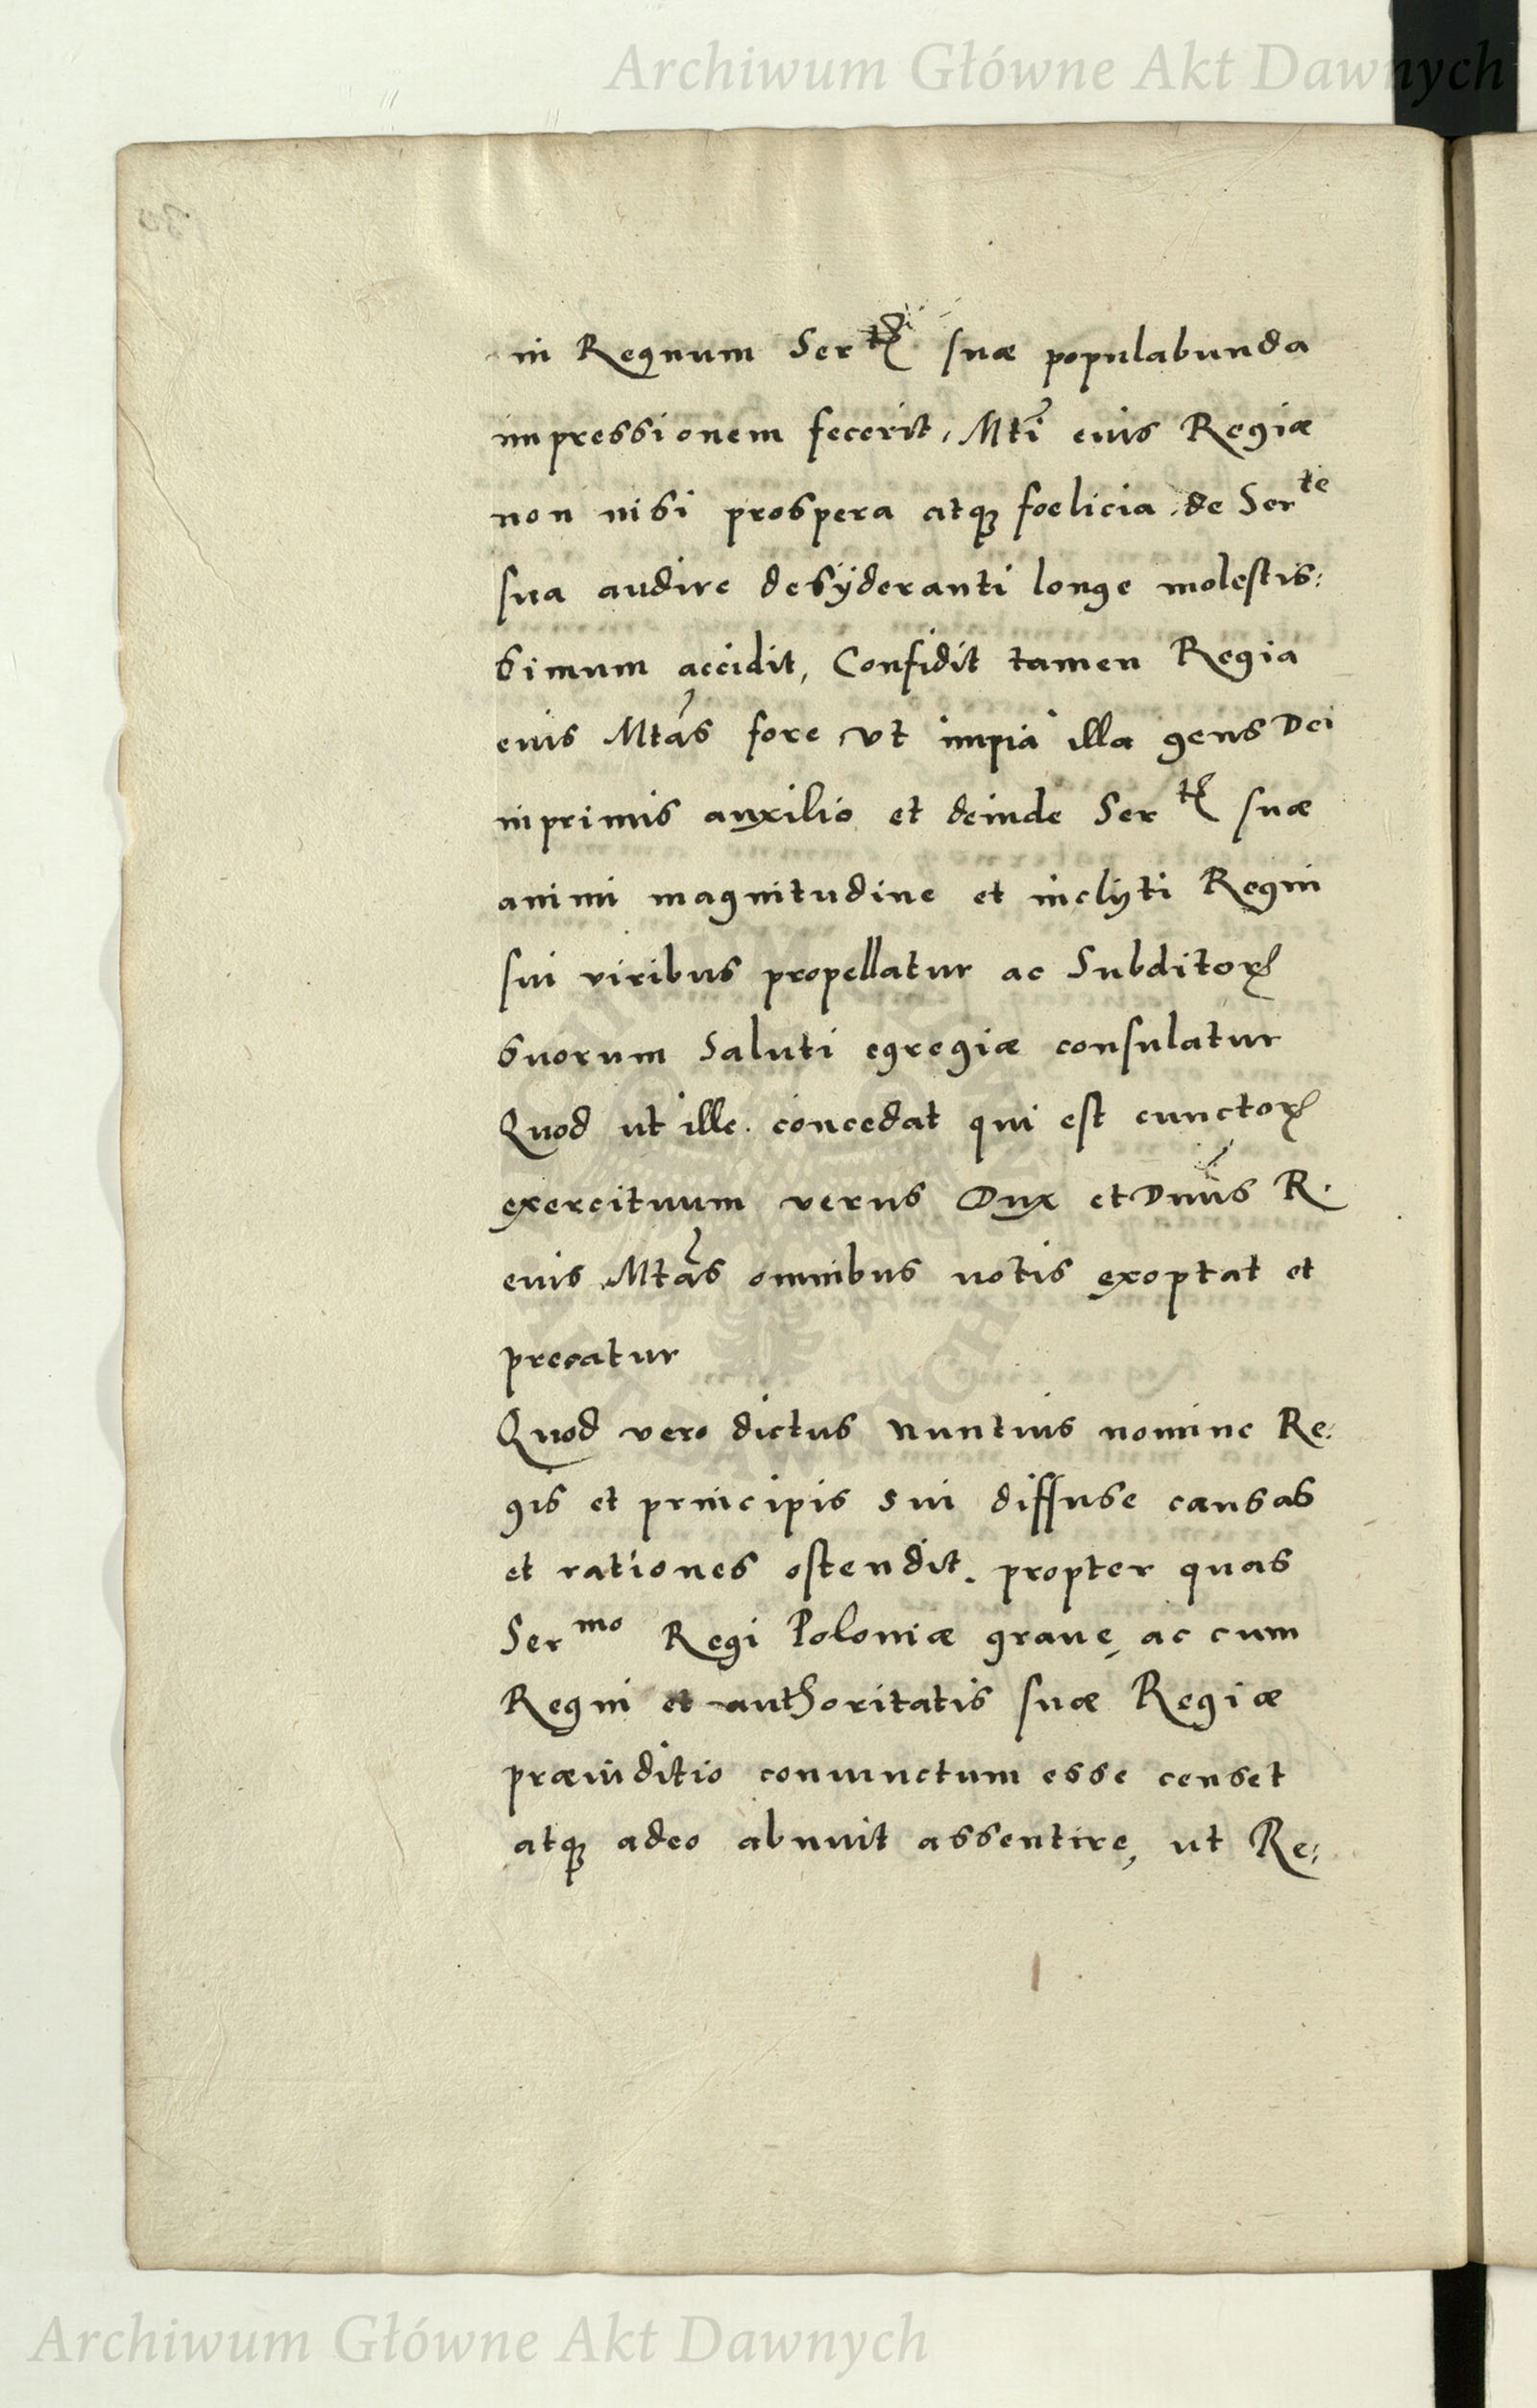 Archiwum Główne Akt Dawnych
in Regnum Ser^tis suæ populabunda
impressionem fecerit, Mti eius Regiæ
non nisi prospera atq; foelicia de Ser^te
sua audire desÿderanti longe molestis:
simum accidit, Confidit tamen Regia
eius Mtas fore vt impia illa gens Dei
inprimis auxilio et deinde Ser^tis suæ
animi magnitudine et inclÿti Regni
sui viribus propellatur ac Subditor[um]
suorum saluti egregiæ consulatur
Quod ut ille concedat qui est cunctor[um]
exercituum verus Dux et Dnus R.
eius Mtas omnibus votis exoptat et
precatur
Quod vero dictus nuntius nomine Re:
gis et principis sui diffuse causas
et rationes ostendit. propter quas
Ser^mo Regi Poloniæ graue, ac cum
Regni et authoritatis suæ Regiæ
præiuditio coniunctum esse censet
atq; adeo abnuit assentire, ut Re:
Archiwum Główne Akt Dawnych